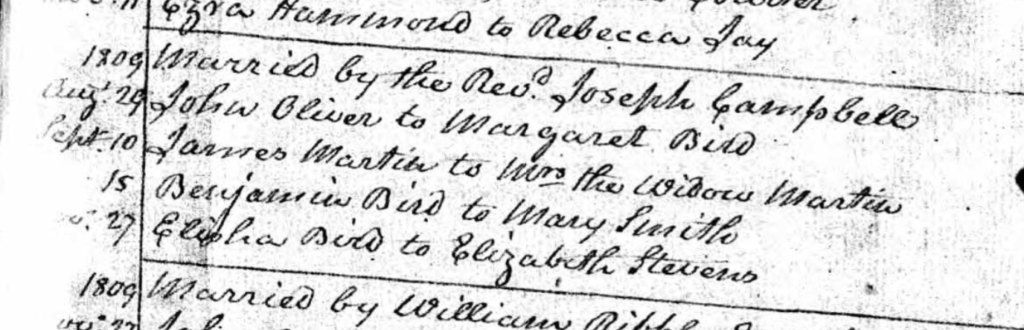 11 Ezra Hammond to Rebecca Jay
1809 Married by the Revd. Joseph Campbell
Augt. 29 John Oliver to Margaret Bird
Sept. 10 James Martin to Mrs the Widow Martin
15 Benjamin Bird to Mary Smith
27 Elisha Bird to Elizabeth Stevens
1809 Married by William